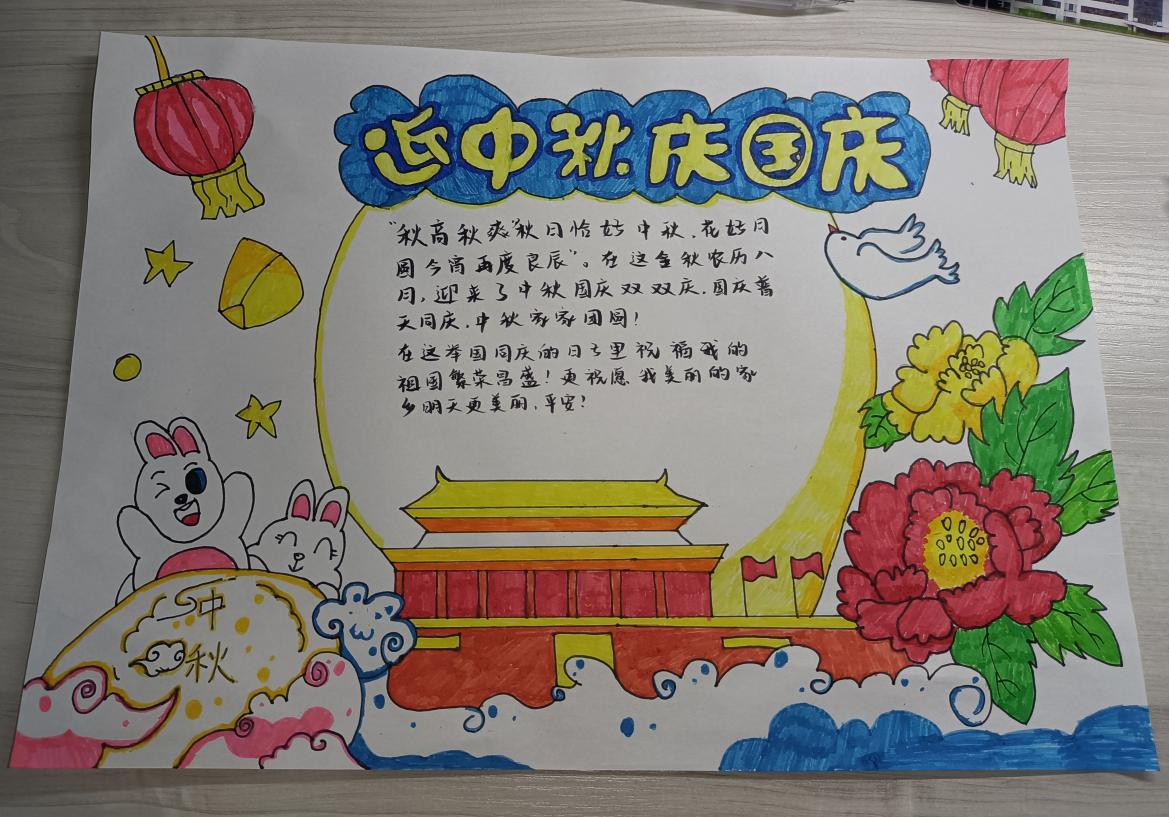 迎中秋庆国庆
“秋高秋爽”秋日恰好中秋.花好月
圆今宵再度良辰”。在这金秋农历八
月,迎来了中秋国庆双双庆.国庆普
天同庆.中秋家家团圆!
在这举国同庆的日子里祝福我的
祖国繁荣昌盛!更祝愿我美丽的家
乡明天更美丽.平安!
中
秋